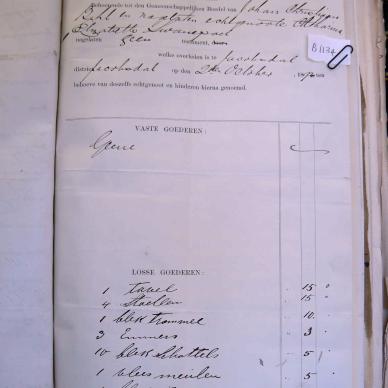 Behoorende tot den Gemeenschappelijken Boedel van Johan Christiaan
Behl en nagelaten echtgenoote Catharina
Elizabeth Swanepoel
nagelaten geen testament,
welke overleden is te Jacobsdal
district Jacobsdal op den 2de October 18
behoeve van deszelfs echtgenoot en kinderen hierna genoemd.
B1134
VASTE GOEDEREN:
Geene
LOSSE GOEDEREN:
1 tavel 15 "
4 Stoellen 15 "
1 blek trommel 10 "
3 Emmers 3 "
10 blek Schottels 5 "
1 vlees meulen 5 "
1